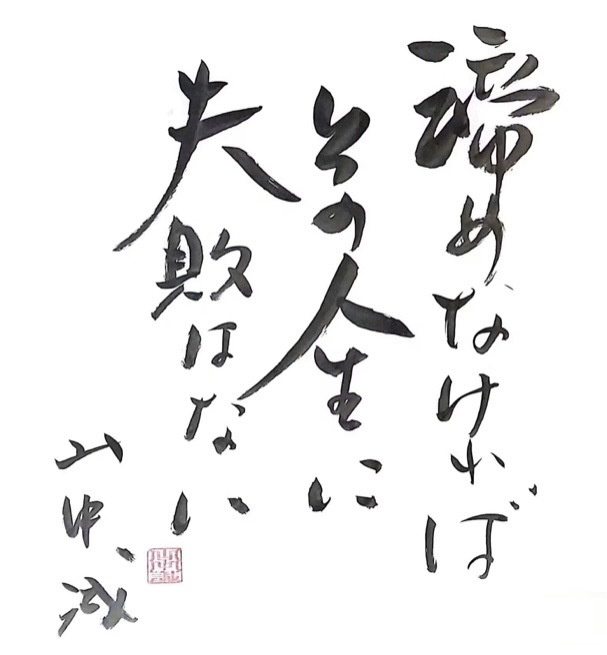 諦めなければ
その人生に
失敗はない
山中